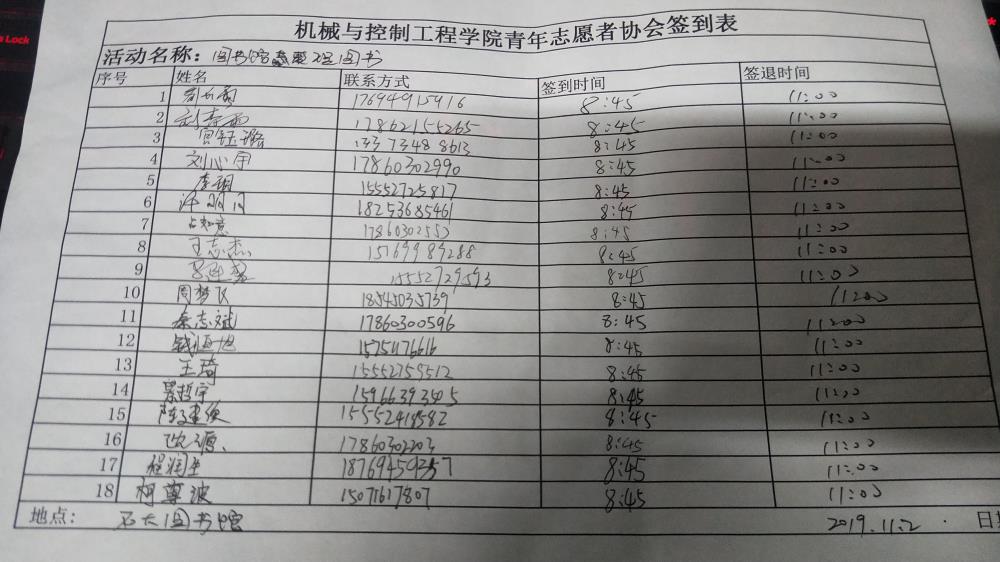 Lock
机械与控制工程学院青年志愿者协会签到表
活动名称：图书馆整理图书
序号 姓名 联系方式 签到时间 签退时间
1 17694915916 8:45 11:00
2 17862155265 8:45 11:00
3 133 7348 8613 8:45 11:00
4 刘心宇 17860302990 8:45 11:00
5 李翔 15552725817 8:45 11:00
6 18253685461 8:45 11:00
7 占知意 17860302552 8:45 11:00
8 王志杰 15169989288 8:45 11:00
9 15552729593 8:45 11:00
10 周梦飞 18545035739 8:45 11:00
11 秦志斌 17860300596 8:45 11:00
12 钱恒旭 8:45 11:00
13 王琦 15552759512 8:45 11:00
14 綦哲宇 15966393545 8:45 11:00
15 陈建俊 15552418582 8:45 11:00
16 沈源 17860302203 8:45 11:00
17 程润生 18769459357 8:45 11:00
18 柯尊波 15071617807 8:45 11:00
地点： 石大图书馆 2019.11.2 日